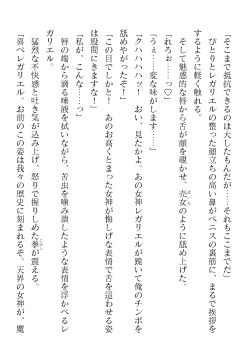 「そこまで抵抗できるのは大したもんだが……それもここまでだ」
　ぴとりとレガリエルの整った顔立ちの高い鼻がペニスの裏筋に、まるで挨拶を
するように軽く触れる。
　そして魅惑的な唇から舌が顔を覗かせ、売女のように舐め上げた。
「れろぉ……っ♡」
「うぇ……変な味がします……」
「クハハハッ！　おい、見たかよ。あの女神レガリエルが跪いて俺のチンポを
舐めやがったぞ！」
「この目でしかと！　あのお高くとまった女神が悔しげな表情で舌を這わせる姿
は股間にきますな！」
「私が、こんな……っ」
　唇の端から滴る唾液を拭いながら、苦虫を噛み潰したような表情を浮かべるレ
ガリエル。
　猛烈な不快感と吐き気が込み上げ、怒りで握りしめた拳が震える。
「喜べレガリエル。お前のこの姿は我々の歴史に刻まれるぞ。天界の女神が、魔